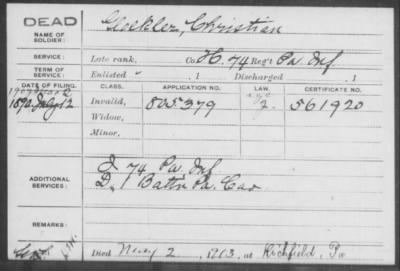 DEAD
NAME OF SOLDIER: Gloekler, Christian
SERVICE: Late rank, Co. H. 74 Reg't Pa. Inf
TERM OF SERVICE: Enlisted , 1 Discharged , 1
DATE OF FILING. CLASS. APPLICATION NO. LAW. CERTIFICATE NO.
1892 July 12 Invalid, 805379 561920
Widow,
Minor,
ADDITIONAL SERVICES: I 74 Pa. Inf
D, 1 Battn Pa. Cav
REMARKS:
Died May 2, 1913, at Richfield, Pa